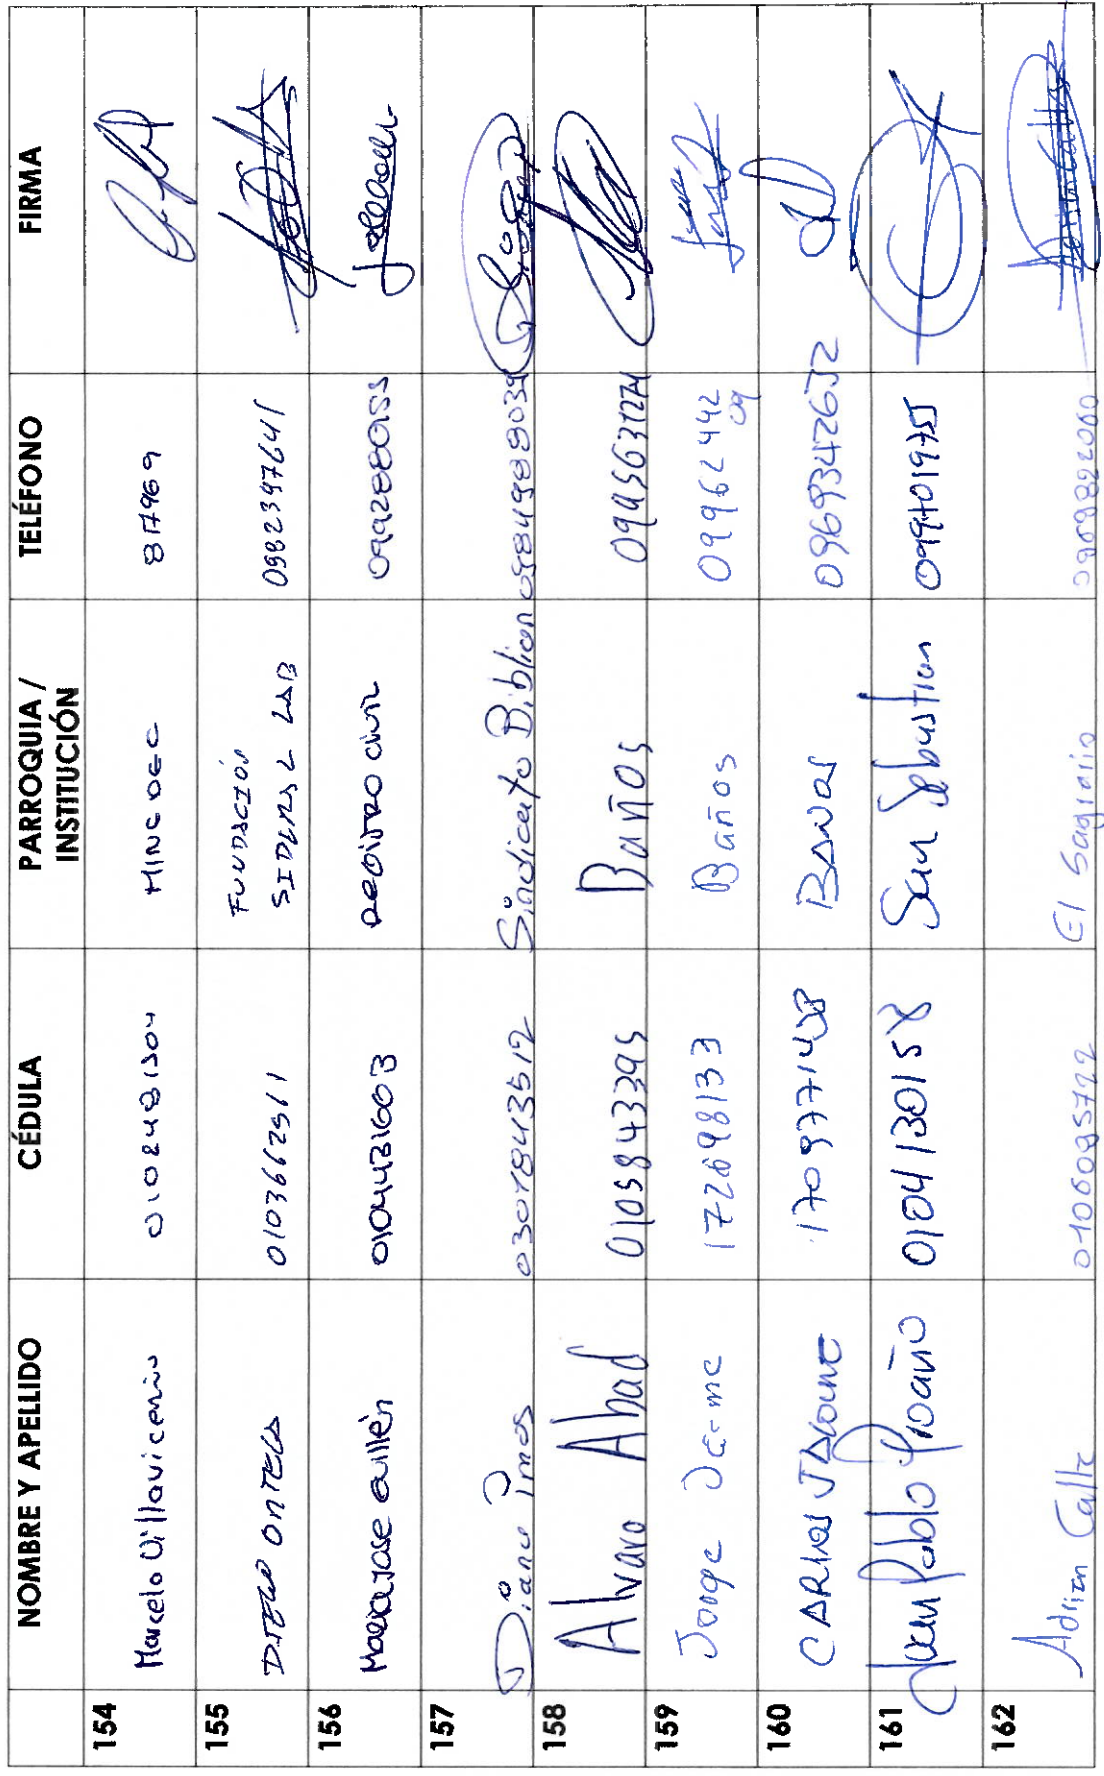 NOMBRE Y APELLIDO CÉDULA PARROQUIA / INSTITUCIÓN TELÉFONO FIRMA
154 Marcelo Villavicencio 0102481304 MINEDEC 817969
155 DIEGO ORTEGA 0103662511 FUNDACIÓN SIDERAL LAB 0982397641
156 Mariajose Guillén 0104431603 REGISTRO CIVIL 0992880153
157 Diana 0301843512 Sindicato Biblian
158 Alvaro Abad 0105843395 Baños 0995631274
159 Jorge 172698133 Baños 0996244209
160 CARLOS JÁCOME 1709771438 BAÑOS 0969342632
161 Juan Pablo Proaño 0104130158 San Sebastian 0999019755
162 Adrian Calle 0106085722 El Sagrario 0989822000